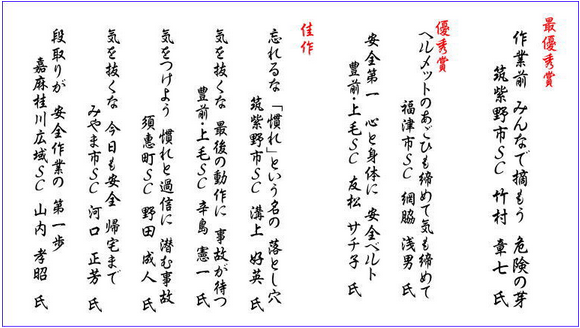 最優秀賞
作業前 みんなで摘もう 危険の芽
筑紫野市SC 竹村 章七 氏
優秀賞
ヘルメットのあごひも締めて気も締めて
福津市SC 網脇 浅男 氏
安全第一 心と身体に 安全ベルト
豊前・上毛SC 友松 サチ子 氏
佳作
忘れるな 「慣れ」という名の 落とし穴
筑紫野市SC 溝上 好英 氏
気を抜くな 最後の動作に 事故が待つ
豊前・上毛SC 辛島 憲一 氏
気をつけよう 慣れと過信に 潜む事故
須恵町SC 野田 成人 氏
気を抜くな 今日も安全 帰宅まで
みやま市SC 河口 正芳 氏
段取りが 安全作業の 第一歩
嘉麻桂川広域SC 山内 孝昭 氏